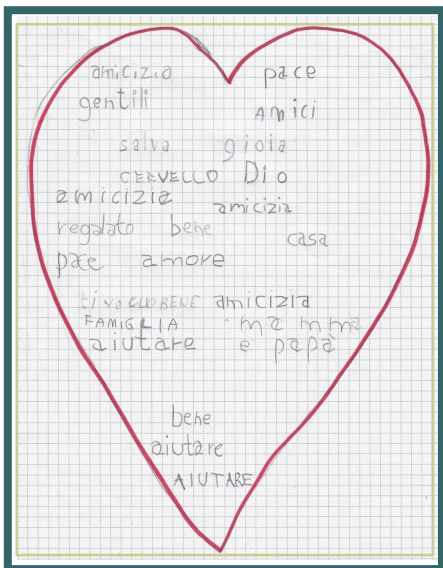 amicizia pace
gentili
AMICI
salva gioia
CERVELLO Dio
amicizia amicizia
regalato bene
casa
pace amore
ti voGLIO BENE amicizia
FAMIGLIA mamma
aiutare e papà
bene
aiutare
AIUTARE